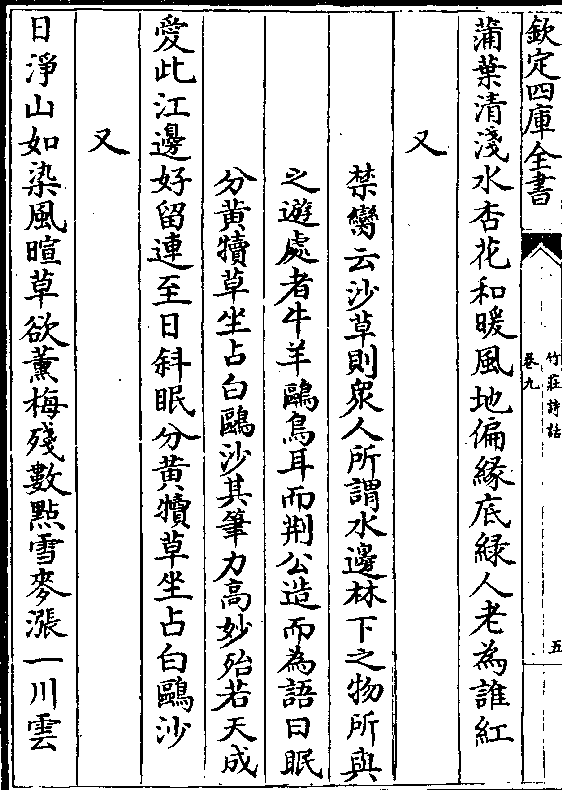 欽定四庫全書
竹莊詩話
卷九
五
蒲葉清淺水杏花和暖風地偏緣底緑人老為誰紅
又
禁臠云沙草則衆人所謂水邊林下之物所與
之遊處者牛羊鷗鳥耳而荆公造而為語曰眠
分黄犢草坐占白鷗沙其筆力高妙殆若天成
愛此江邊好留連至日斜眠分黄犢草坐占白鷗沙
又
日淨山如染風暄草欲薰梅殘數點雪麥漲一川雲